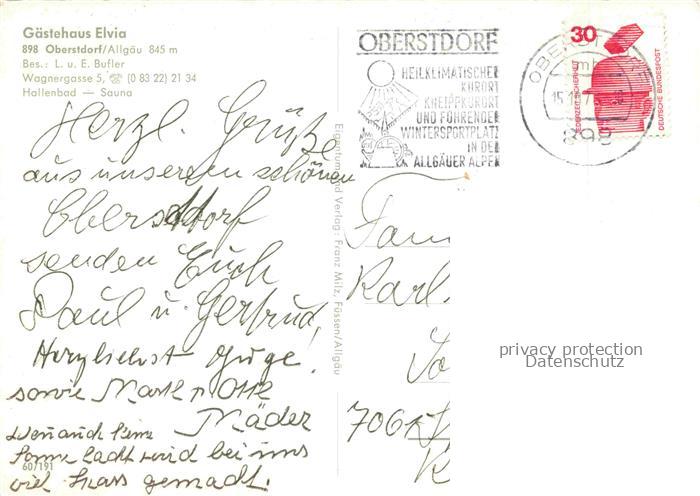 Gästehaus Elvia
898 Oberstdorf/Allgäu 845 m
Bes.: L. u. E. Bufler
Wagnergasse 5, ☏ (0 83 22) 21 34
Hallenbad — Sauna
Herzl. Grüße
aus unserem schönen
Oberstdorf
senden Euch
Paul u. Gertrud,
Herzlichst
sowie
Mäder
Wenn auch keine
Sonne lacht wird bei uns
viel Spass gemacht.
60/191
Eigentum und Verlag: Franz Milz, Füssen/Allgäu
OBERSTDORF
HEILKLIMATISCHER
KURORT
KNEIPPKURORT
UND FÜHRENDER
WINTERSPORTPLATZ
IN DEN
ALLGÄUER ALPEN
898
30
JEDERZEIT SICHERHEIT
DEUTSCHE BUNDESPOST
Fam
Karl
706
privacy protection
Datenschutz